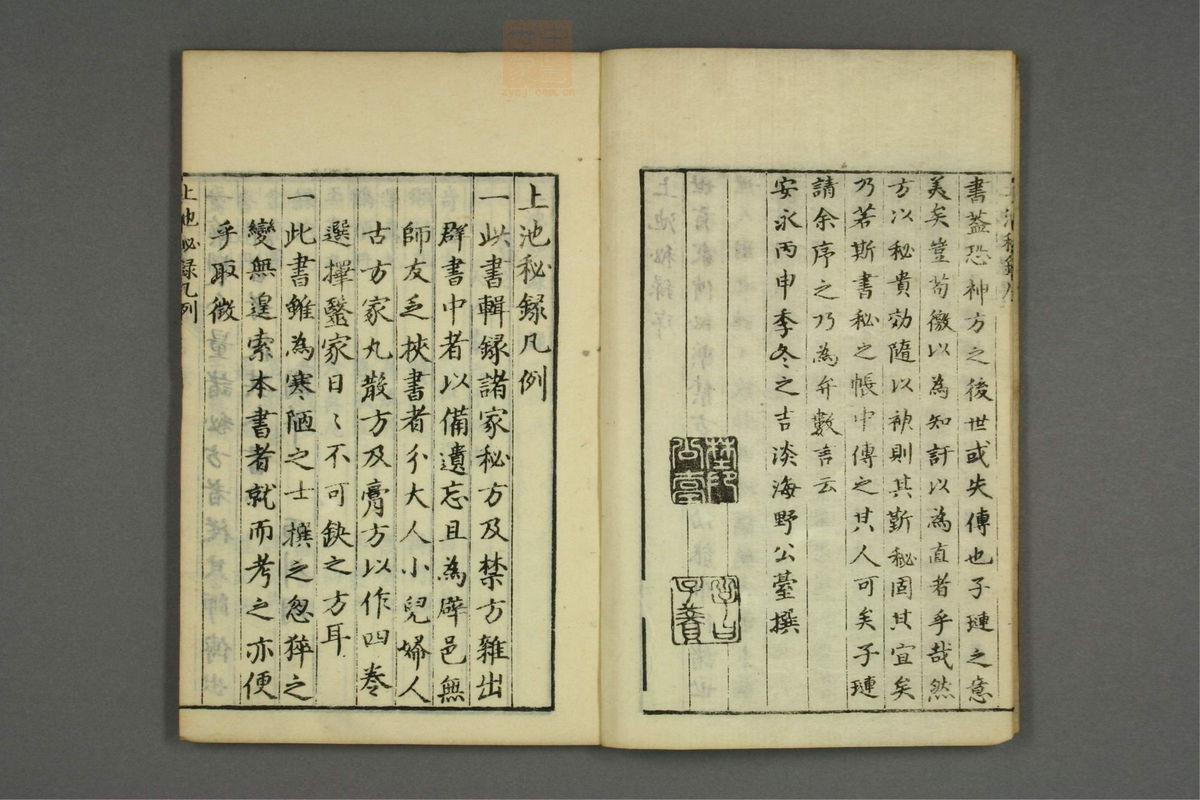 書蓋恐神方之後世或失傳也子璉之意
美矣豈苟徼以為知訐以為直者乎哉然
方以秘貴効隨以神則其斯秘固其宜矣
乃若斯書秘之帳中傳之其人可矣子璉
請余序之乃為弁數言云
安永丙申季冬之吉淡海野公臺撰
上池秘録凡例
一此書輯録諸家秘方及禁方雜出
群書中者以備遺忘且為僻邑無
師友乏挾書者分大人小兒婦人
古方家丸散方及膏方以作四卷
選擇醫家日〻不可缺之方耳
一此書雖為寒陋之士撰之忽猝之
變無遑索本書者就而考之亦便
乎取徴
上池秘録凡例
zycj.com.cn